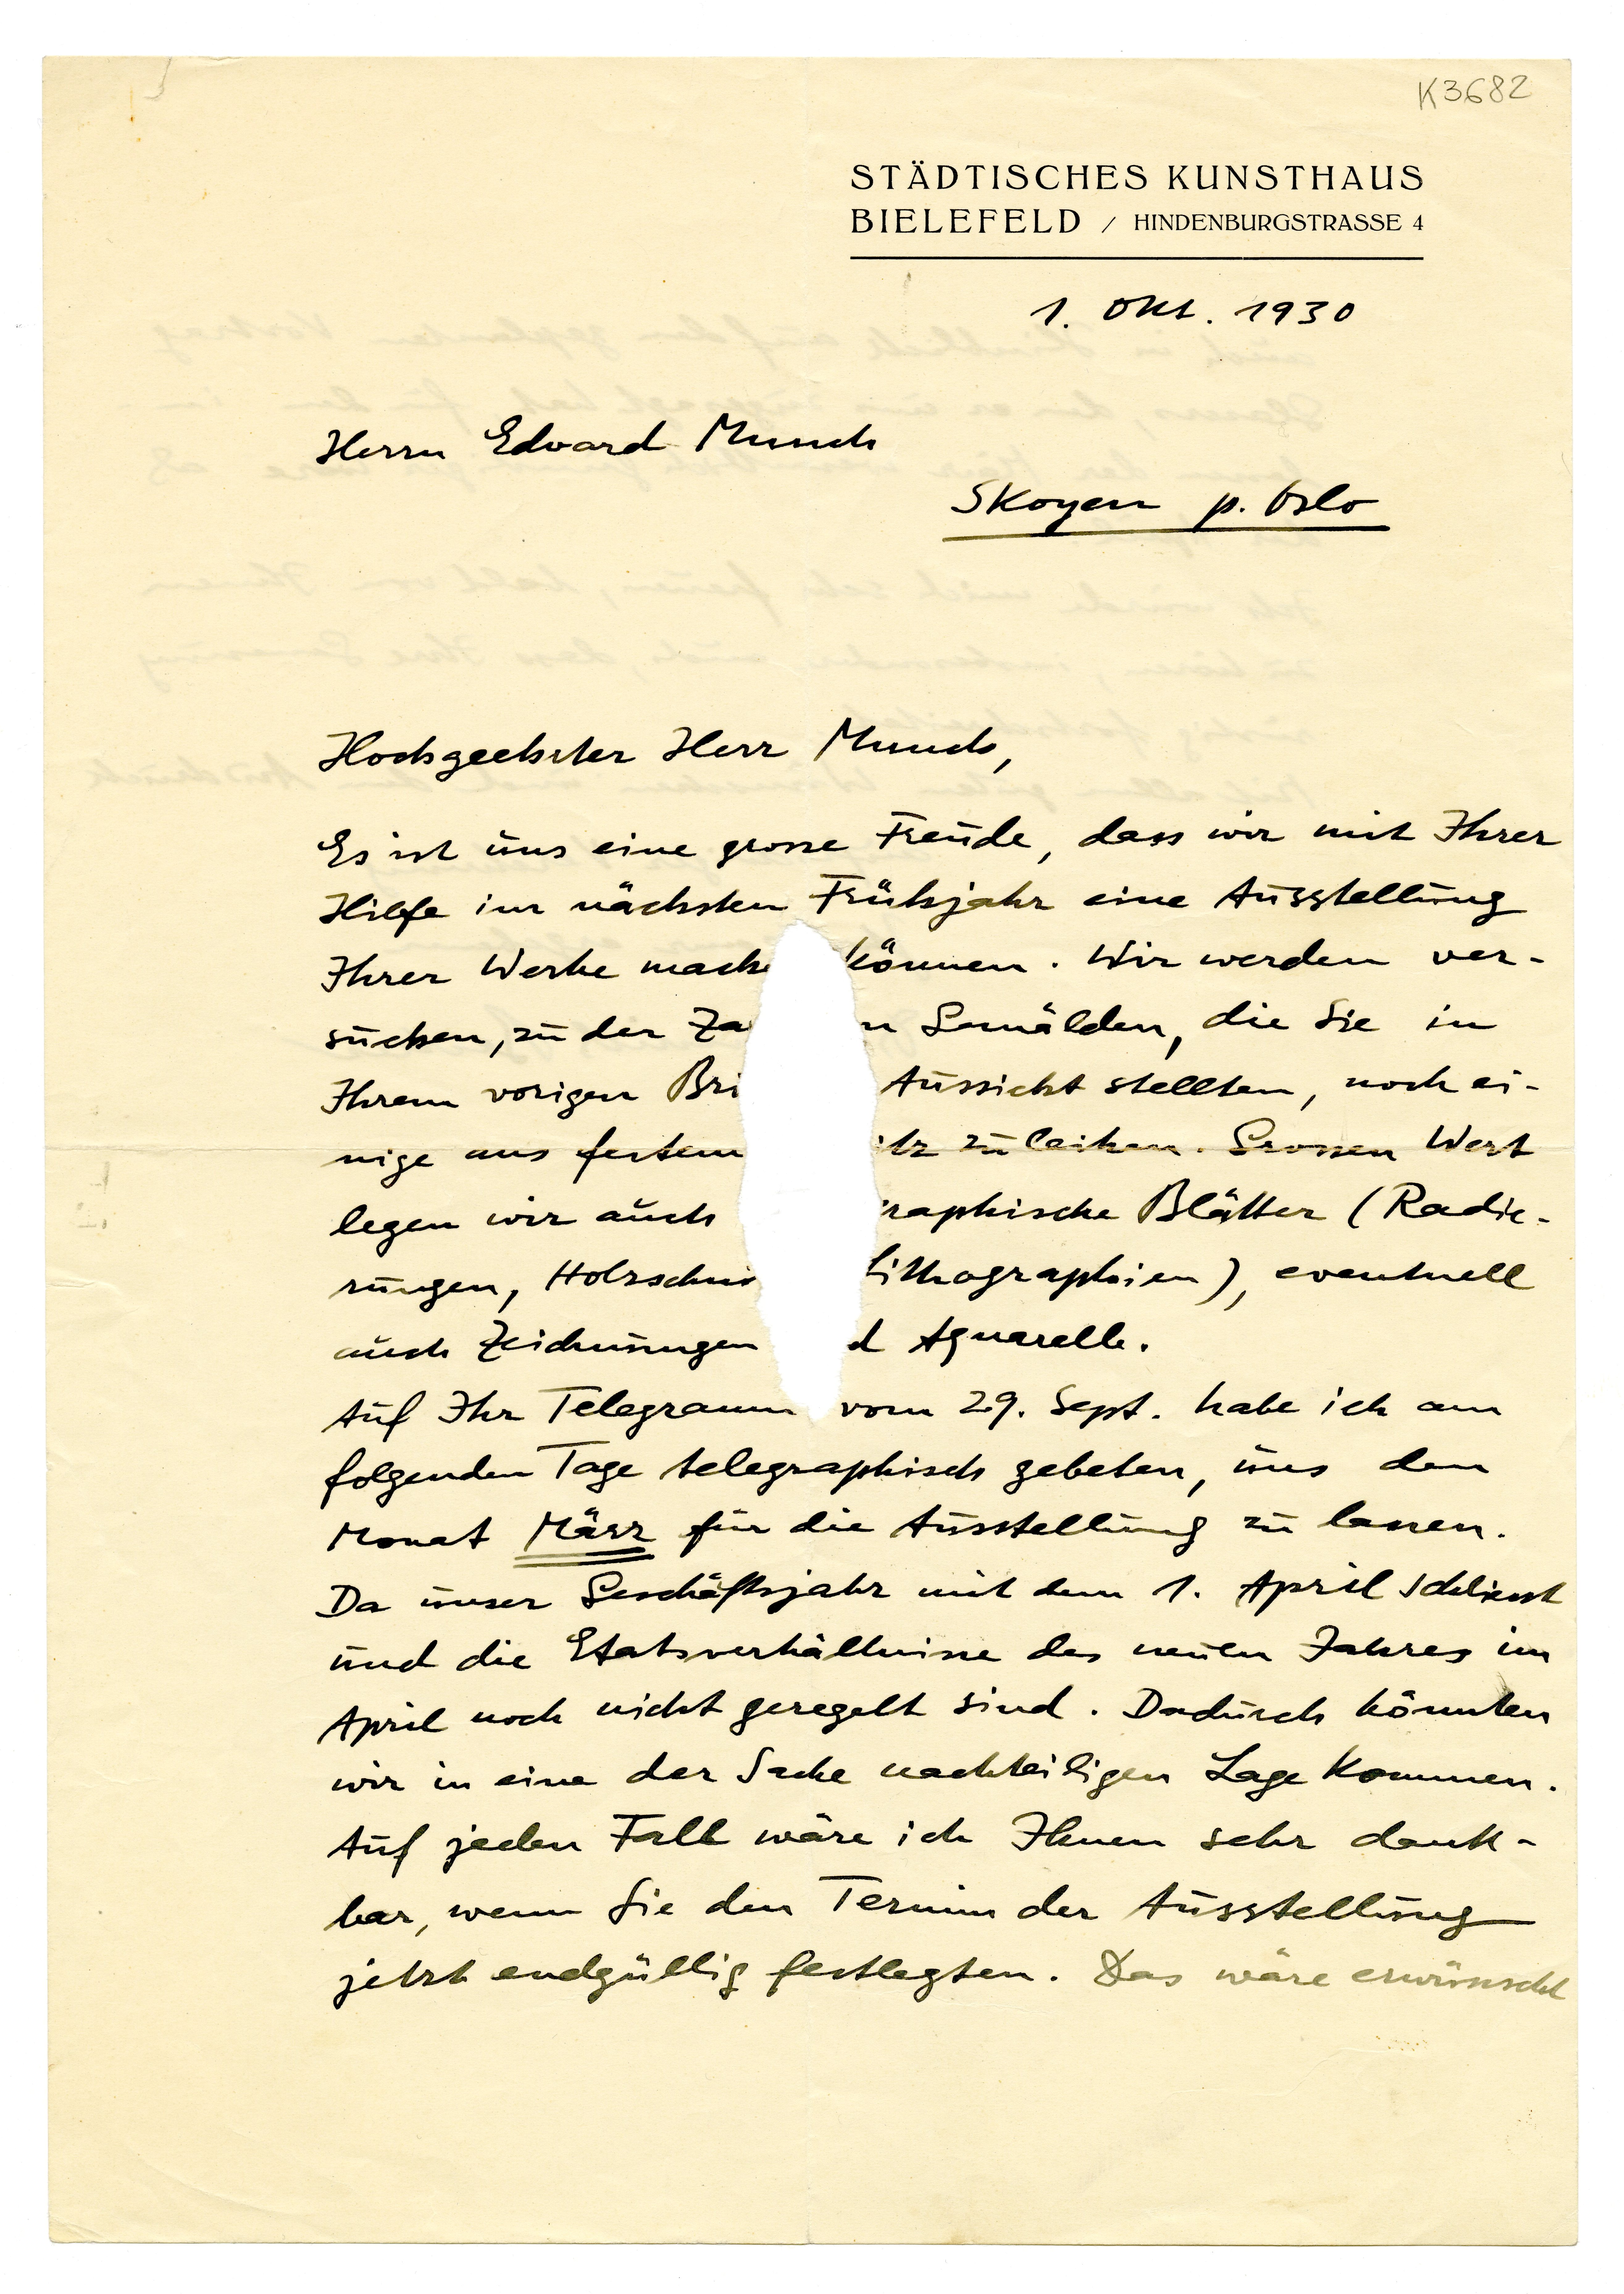 K3682
STÄDTISCHES KUNSTHAUS
BIELEFELD / HINDENBURGSTRASSE 4
1. Okt. 1930
Herrn Edvard Munch
Skoyen p. Oslo
Hochgeehrter Herr Munch,
Es ist uns eine grosse Freude, dass wir mit Ihrer
Hilfe im nächsten Frühjahr eine Ausstellung
Ihrer Werke mache können. Wir werden ver-
suchen, zu der Za n Gemälden, die Sie in
Ihrem vorigen Bri Aussicht stellten, noch ei-
nige aus festem itz zu leihen. Grossen Wert
legen wir auch raphische Blätter (Radie-
rungen, Holzschni Lithographien), eventuell
auch Zeichnungen d Aquarelle.
Auf Ihr Telegramm vom 29. Sept. habe ich am
folgenden Tage telegraphisch gebeten, uns den
Monat März für die Ausstellung zu lassen.
Da unser Geschäftsjahr mit dem 1. April schliesst
und die Etatsverhältnisse des neuen Jahres im
April noch nicht geregelt sind. Dadurch könnten
wir in eine der Sache nachteiligen Lage kommen.
Auf jeden Fall wäre ich Ihnen sehr dank-
bar, wenn Sie den Termin der Ausstellung
jetzt endgültig festlegten. Das wäre erwünscht